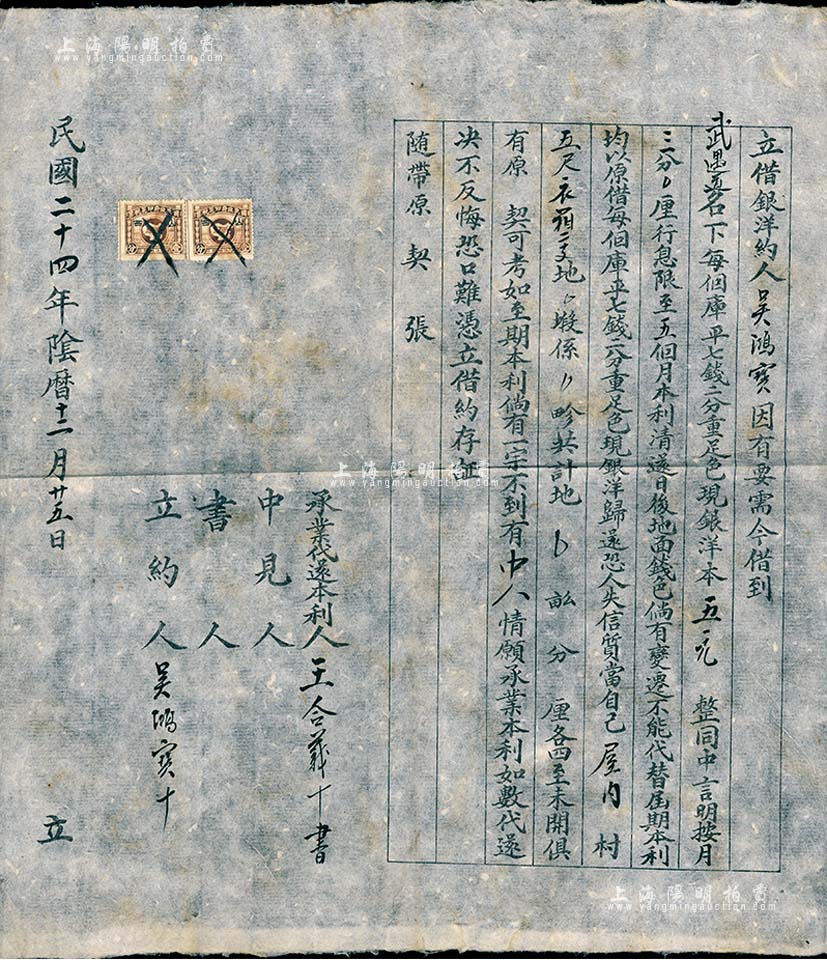 立借銀洋約人吳鴻寶因有要需今借到
武遇道名下每個庫平七錢二分重足色現銀洋本五元整同中言明按月
三分〇厘行息限至五個月本利清還日後地面錢色倘有變遷不能代替屆期本利
均以原借每個庫平七錢二分重足色現銀洋歸還恐人失信質當自己屋內村
五尺地塅係畛共計地畝分厘各四至未開俱
有原契可考如至期本利倘有一宗不到有中人情願承業本利如數代還
決不反悔恐口難憑立借約存証
隨帶原契張
承業代還本利人王合義十書
中見人
書人
立約人吳鴻寶十
民國二十四年陰曆十二月廿五日立
上海陽明拍賣
www.yangmingauction.com
上海陽明拍賣
www.yangmingauction.com
上海陽明拍賣
www.yangmingauction.com